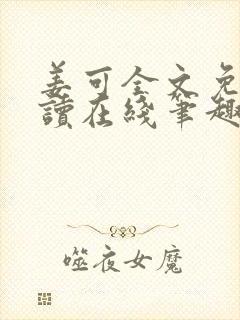 姜可全文免
读在线笔趣
噬夜女魔